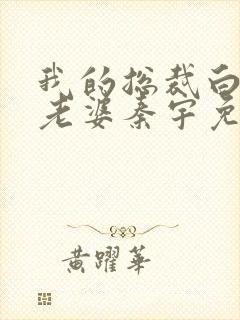 我的总裁白
老婆秦宇免
黄躍华